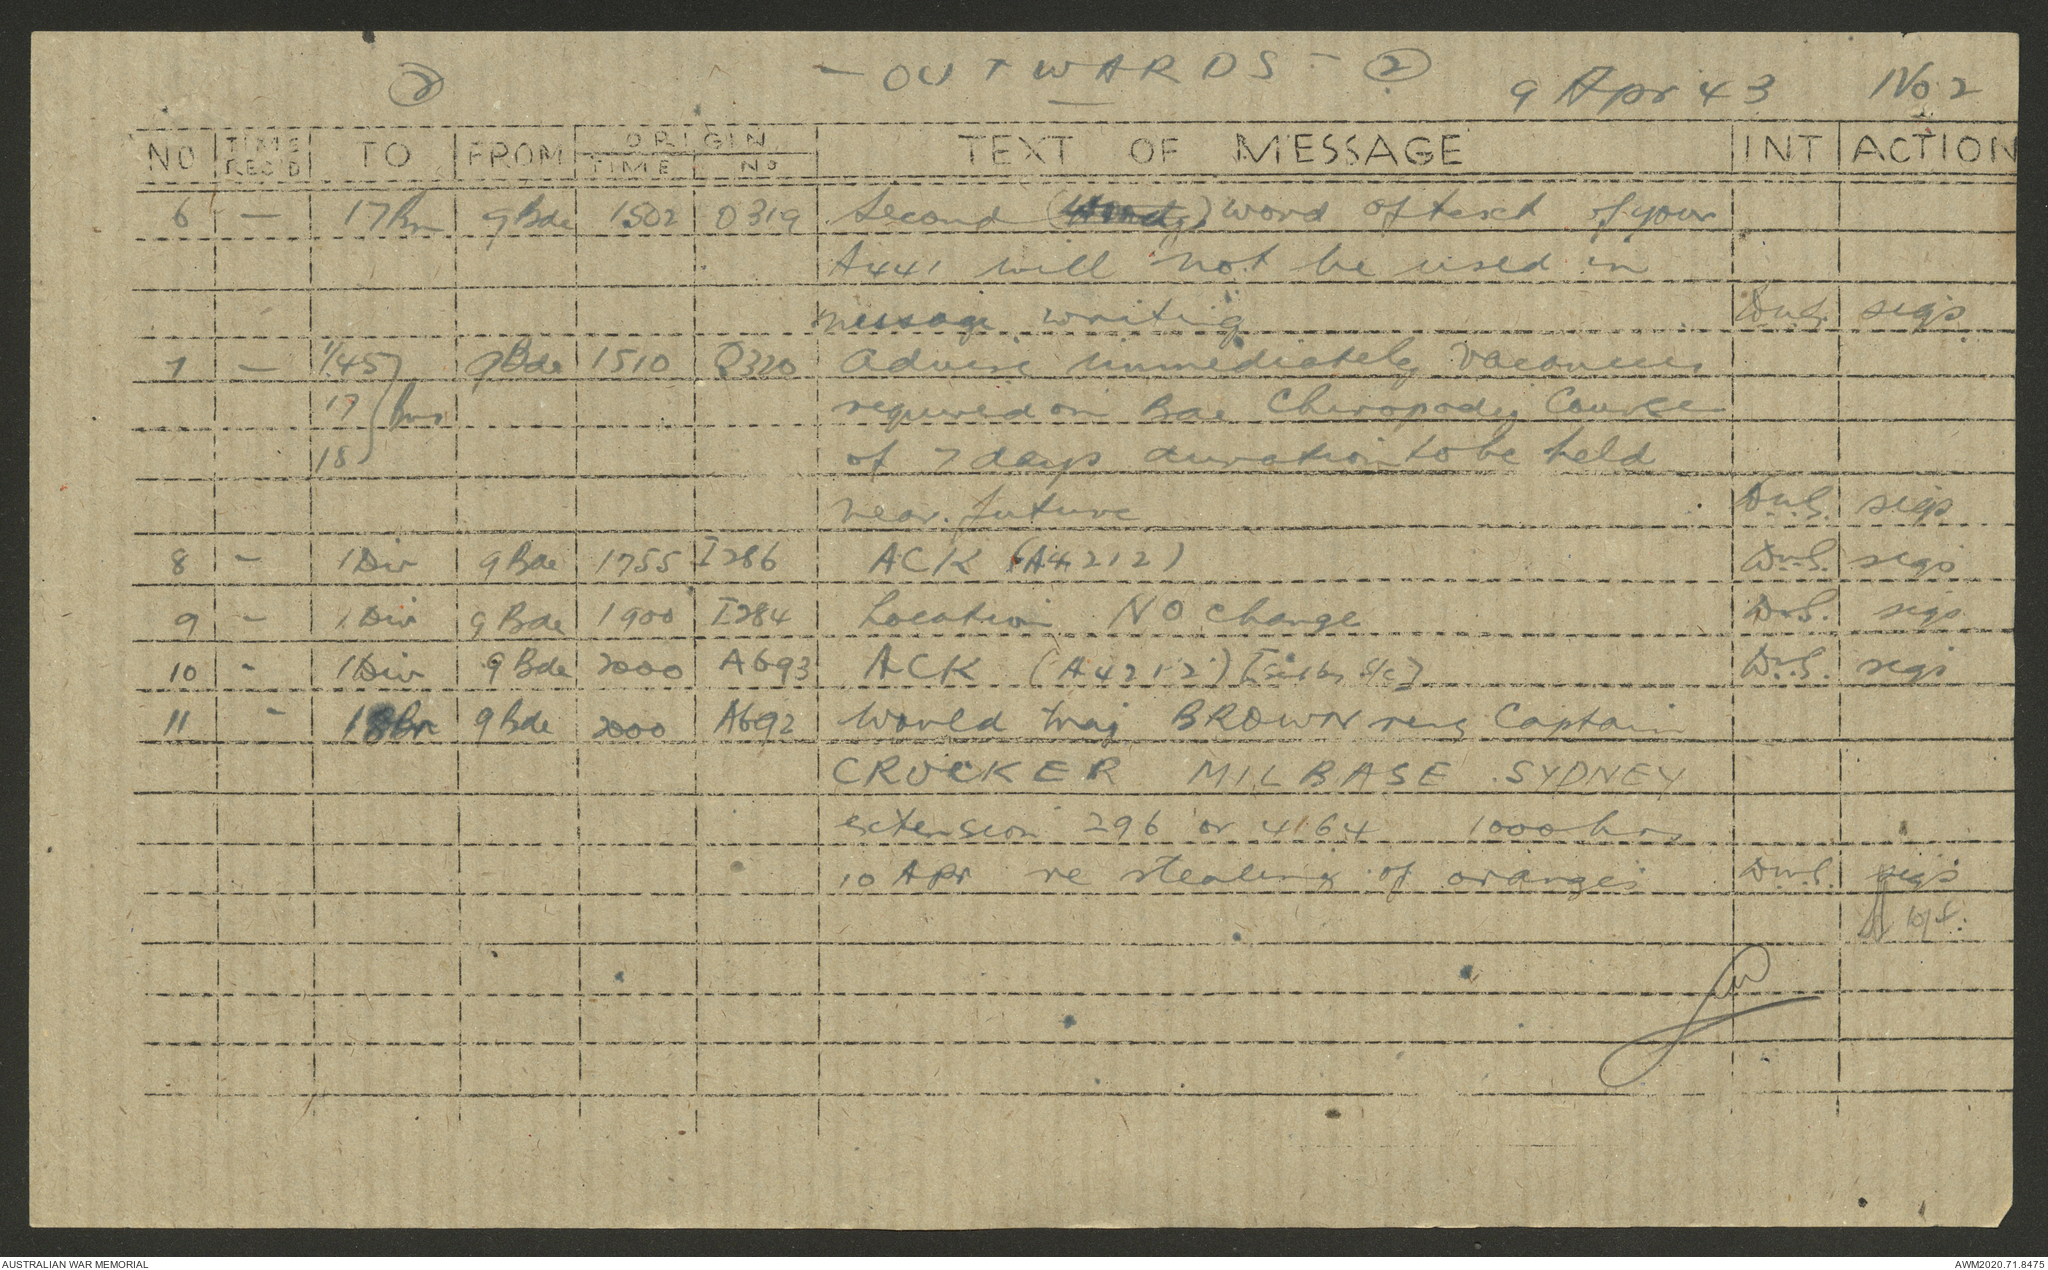 - OUTWARDS - (2)
(2)
9 Apr 43 No 2
NO TIME REC'D TO FROM ORIGIN TIME NO TEXT OF MESSAGE INT ACTION
6 — 17 Bn 9 Bde 1502 O319 Second word of text of your
A441 will not be used in
message writing sigs
7 — 1/45 9 Bde 1510 Q320 advise immediately vacancies
17 } bns required on Bde Chiropody Course
18 of 7 days duration to be held
near future sigs
8 - 1 Div 9 Bde 1755 I286 ACK (A4212) sigs
9 - 1 Div 9 Bde 1900 I284 Location NO change sigs
10 - 1 Div 9 Bde 2000 A693 ACK (A4212) sigs
11 - 18 Bn 9 Bde 2000 A692 Would Maj BROWN ring Captain
CROCKER MILBASE SYDNEY
extension 296 or 4164 1000 hrs
10 Apr re stealing of oranges sigs
AUSTRALIAN WAR MEMORIAL
AWM2020.71.8475